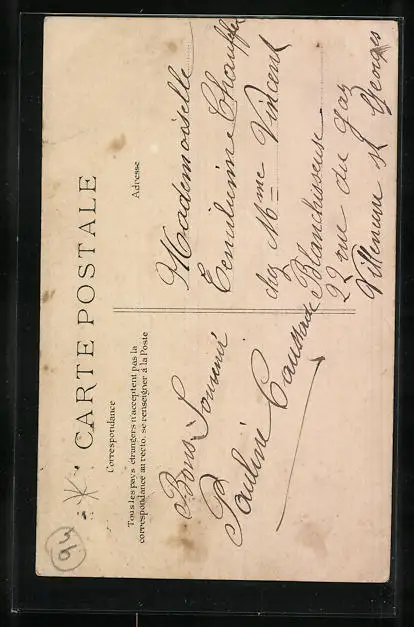 CARTE POSTALE
Correspondance
Tous les pays étrangers n'acceptent pas la
correspondance au recto, se renseigner à la Poste
Adresse
Bons Souvenir
Pauline Caussade
Mademoiselle
chez Mme Vincent
Blanchisseuse
22 rue du Gaz
Villeneuve St Georges
94